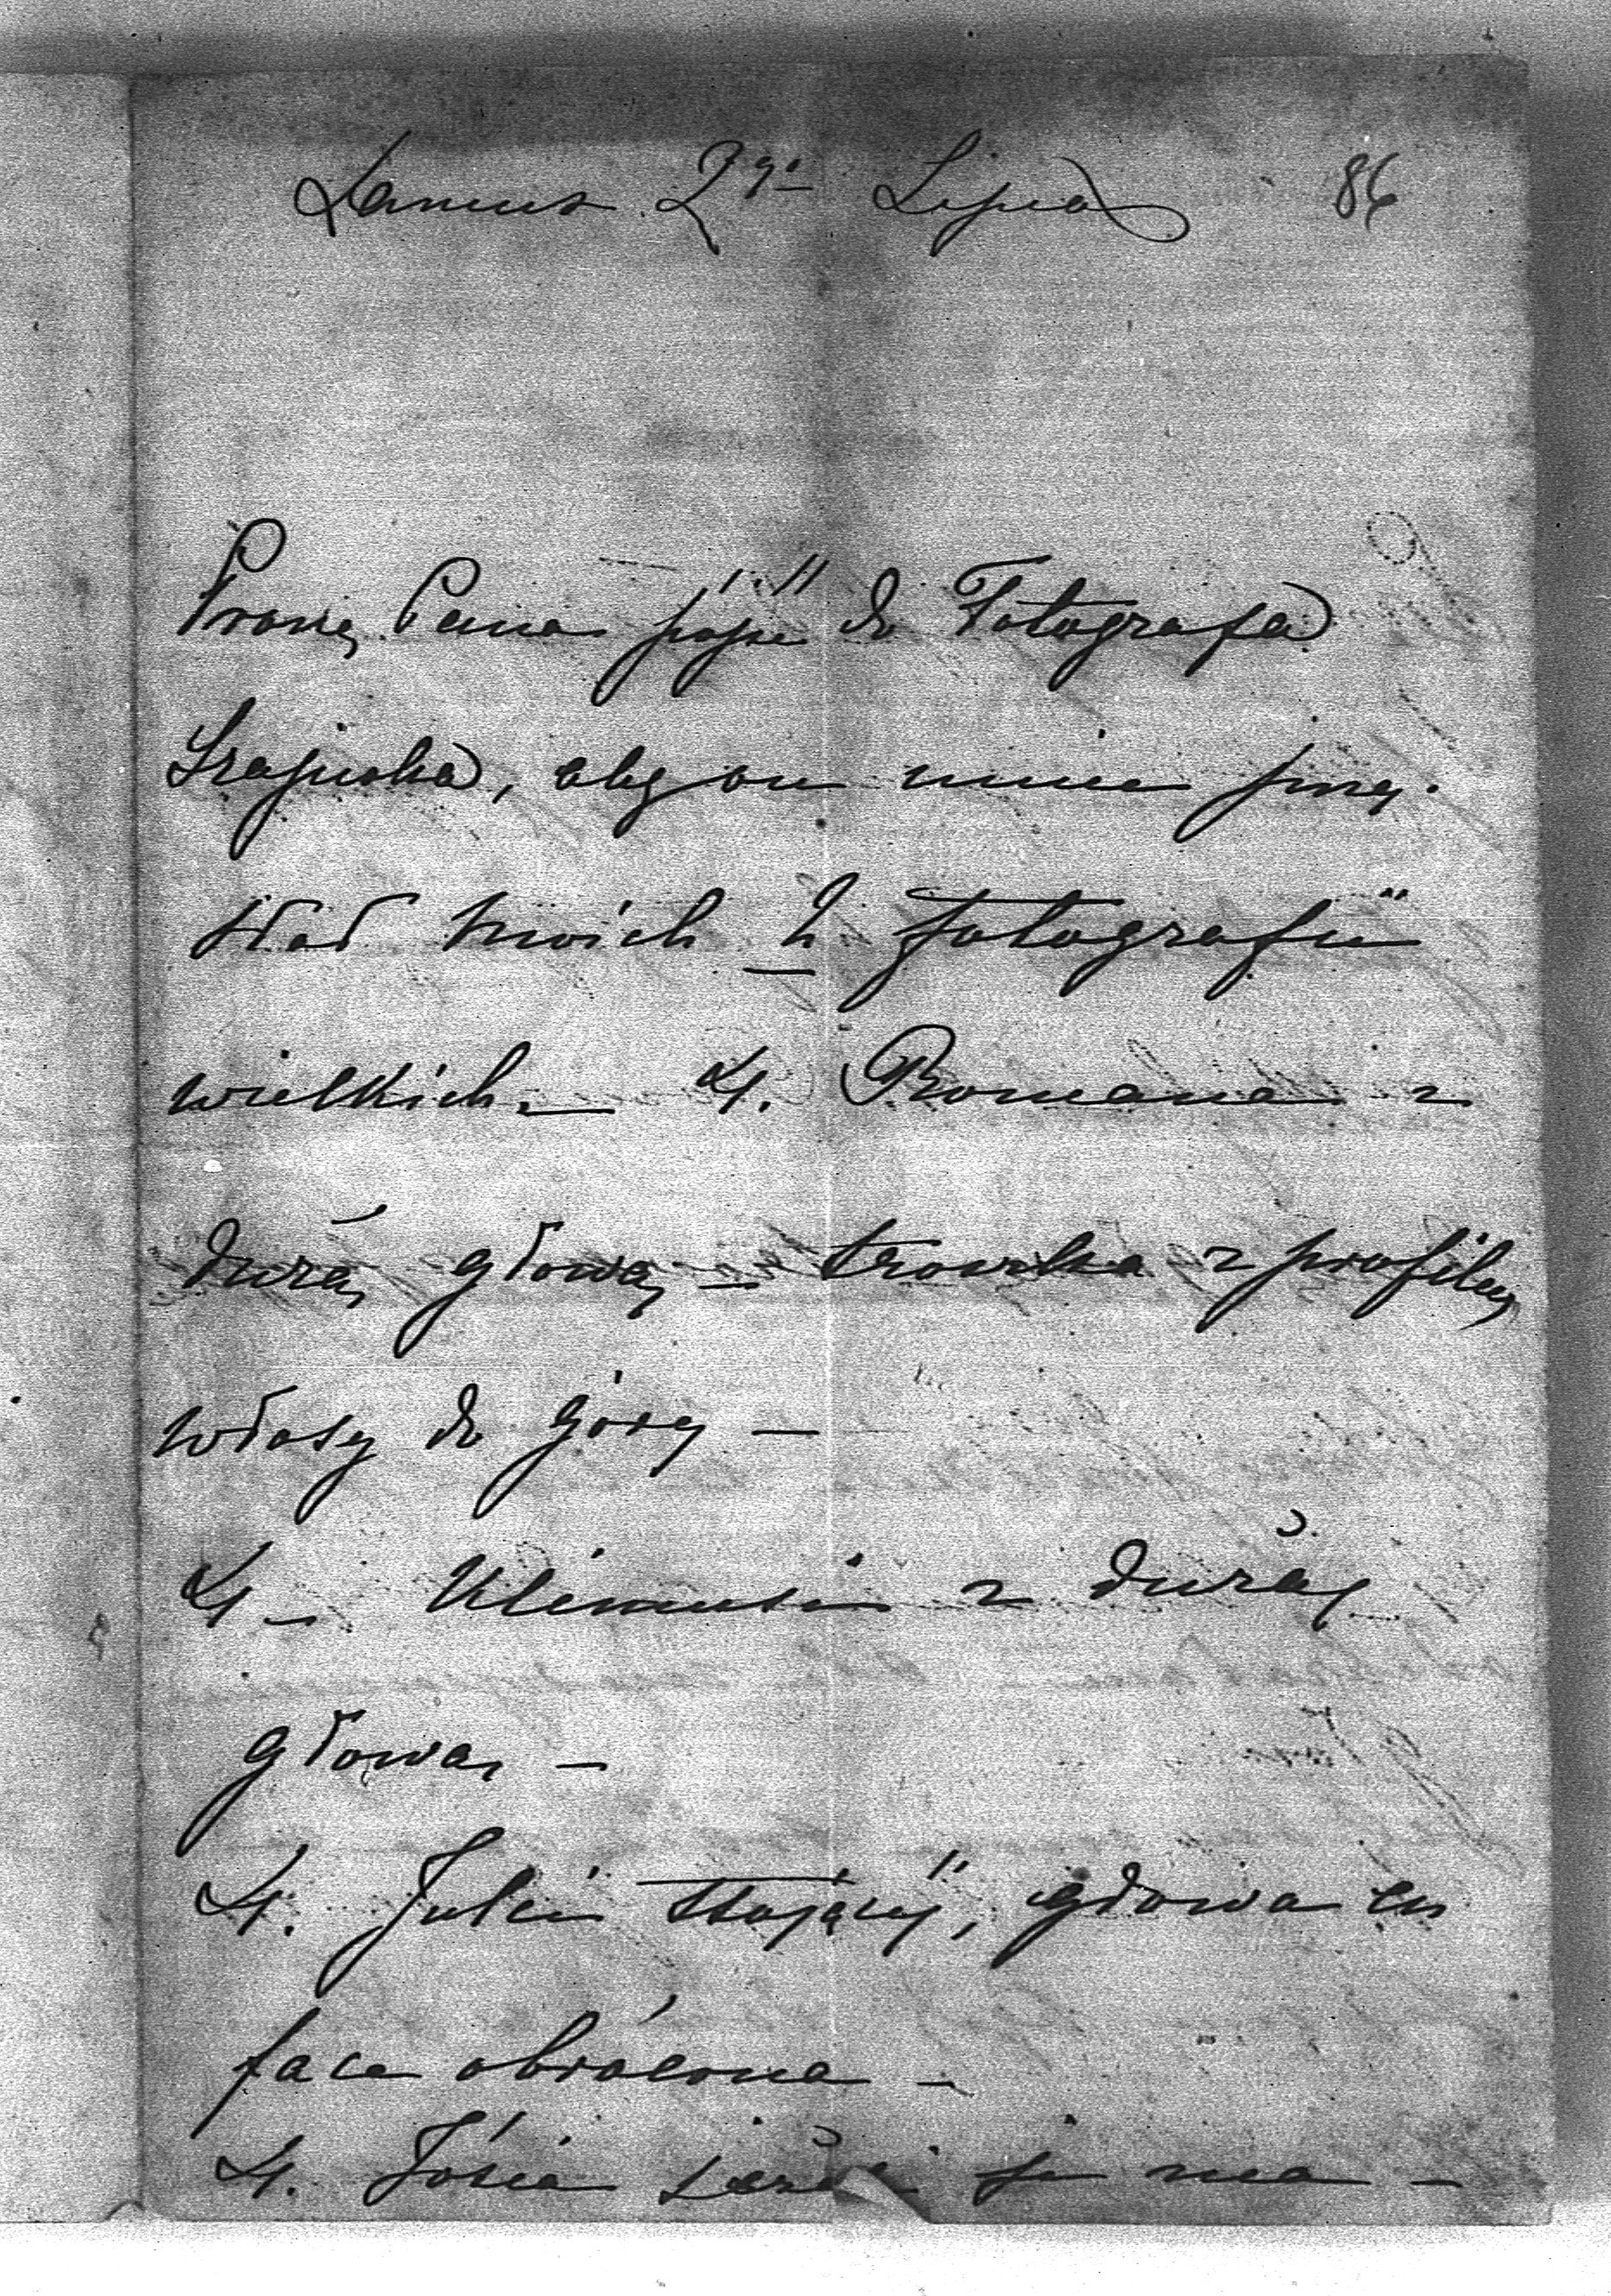 Łańcut 2go Lipca 86
Proszę Pana pójść do Fotografa
Szajnoka, aby on mnie przy-
słał moich fotografii
wielkich — 4. Romana z
dużą głową — troszka z profilu
włosy do góry —
4 – Klimusia z dużą
głową —
4. Julci stojący, głowa en
face obrócona —
4. Józia jeżeli je ma —